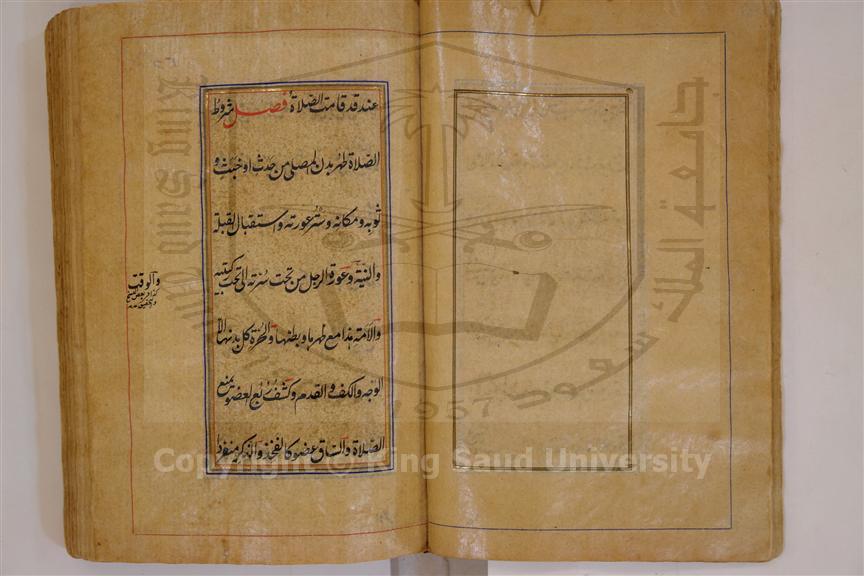 عند قد قامت الصلاة فصل شروط
الصلاة طهر بدن المصلي من حدث او خبث و
ثوبه و مكانه و ستر عورته و استقبال القبلة
والنية وعورة الرجل من تحت سرته الى تحت ركبتيه
والامة هذا مع ظهرها وبطنها والحرة كل بدنها الا
الوجه والكف والقدم وكشف ربع العضو يمنع
الصلاة والساق عضو كالفخذ والذكر منفردا
والوقت
كذا في بعض النسخ
King Saud University
جامعة الملك سعود
1957
Copyright © King Saud University